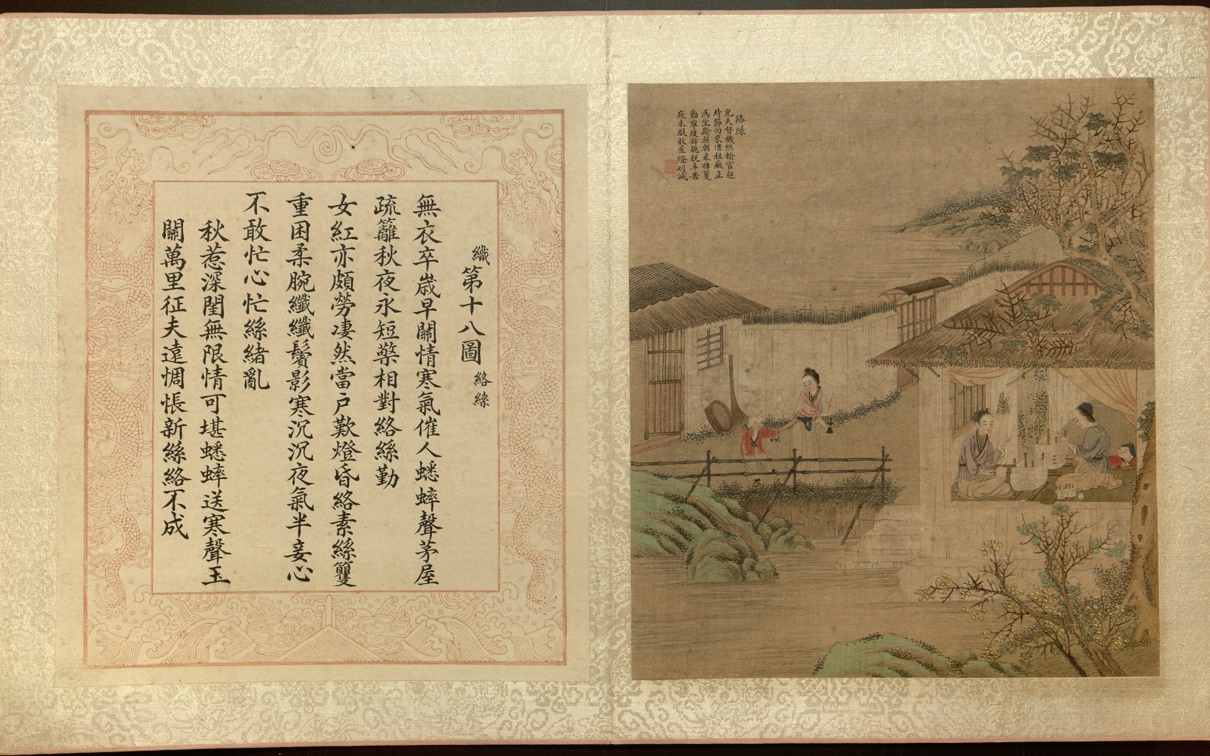 織第十八圖 絡絲
無衣卒歲早關情寒氣催人蟋蟀聲茅屋
疏籬秋夜永短檠相對絡絲勤
女紅亦頗勞凄然當戶歎燈昏絡素絲籰
重困柔腕纖纖鬢影寒沉沉夜氣半妾心
不敢忙心忙絲緒亂
秋惹深閨無限情可堪蟋蟀送寒聲玉
關萬里征夫遠惆悵新絲絡不成
絡絲